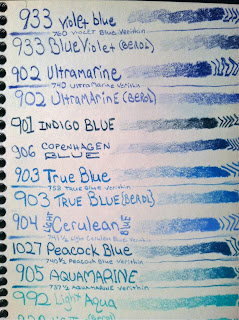 933 violet blue
760 VIOLET Blue Verithin
933 BlueViolet (BEROL)
902 Ultramarine
740 Ultramarine Verithin
902 UltrAmArinE (BEROL)
901 INDIGO BLUE
906 COPENHAGEN BLUE
903 True Blue
758 TRUE BLUE Verithin
903 TRUE BLUE (BEROL)
904 Light Cerulean BLUE
Light Cerulean Blue Verithin
1027 Peacock Blue
Peacock Blue Verithin
905 AQUAMARINE
AQUAMARINE Verithin
992 Light Aqua